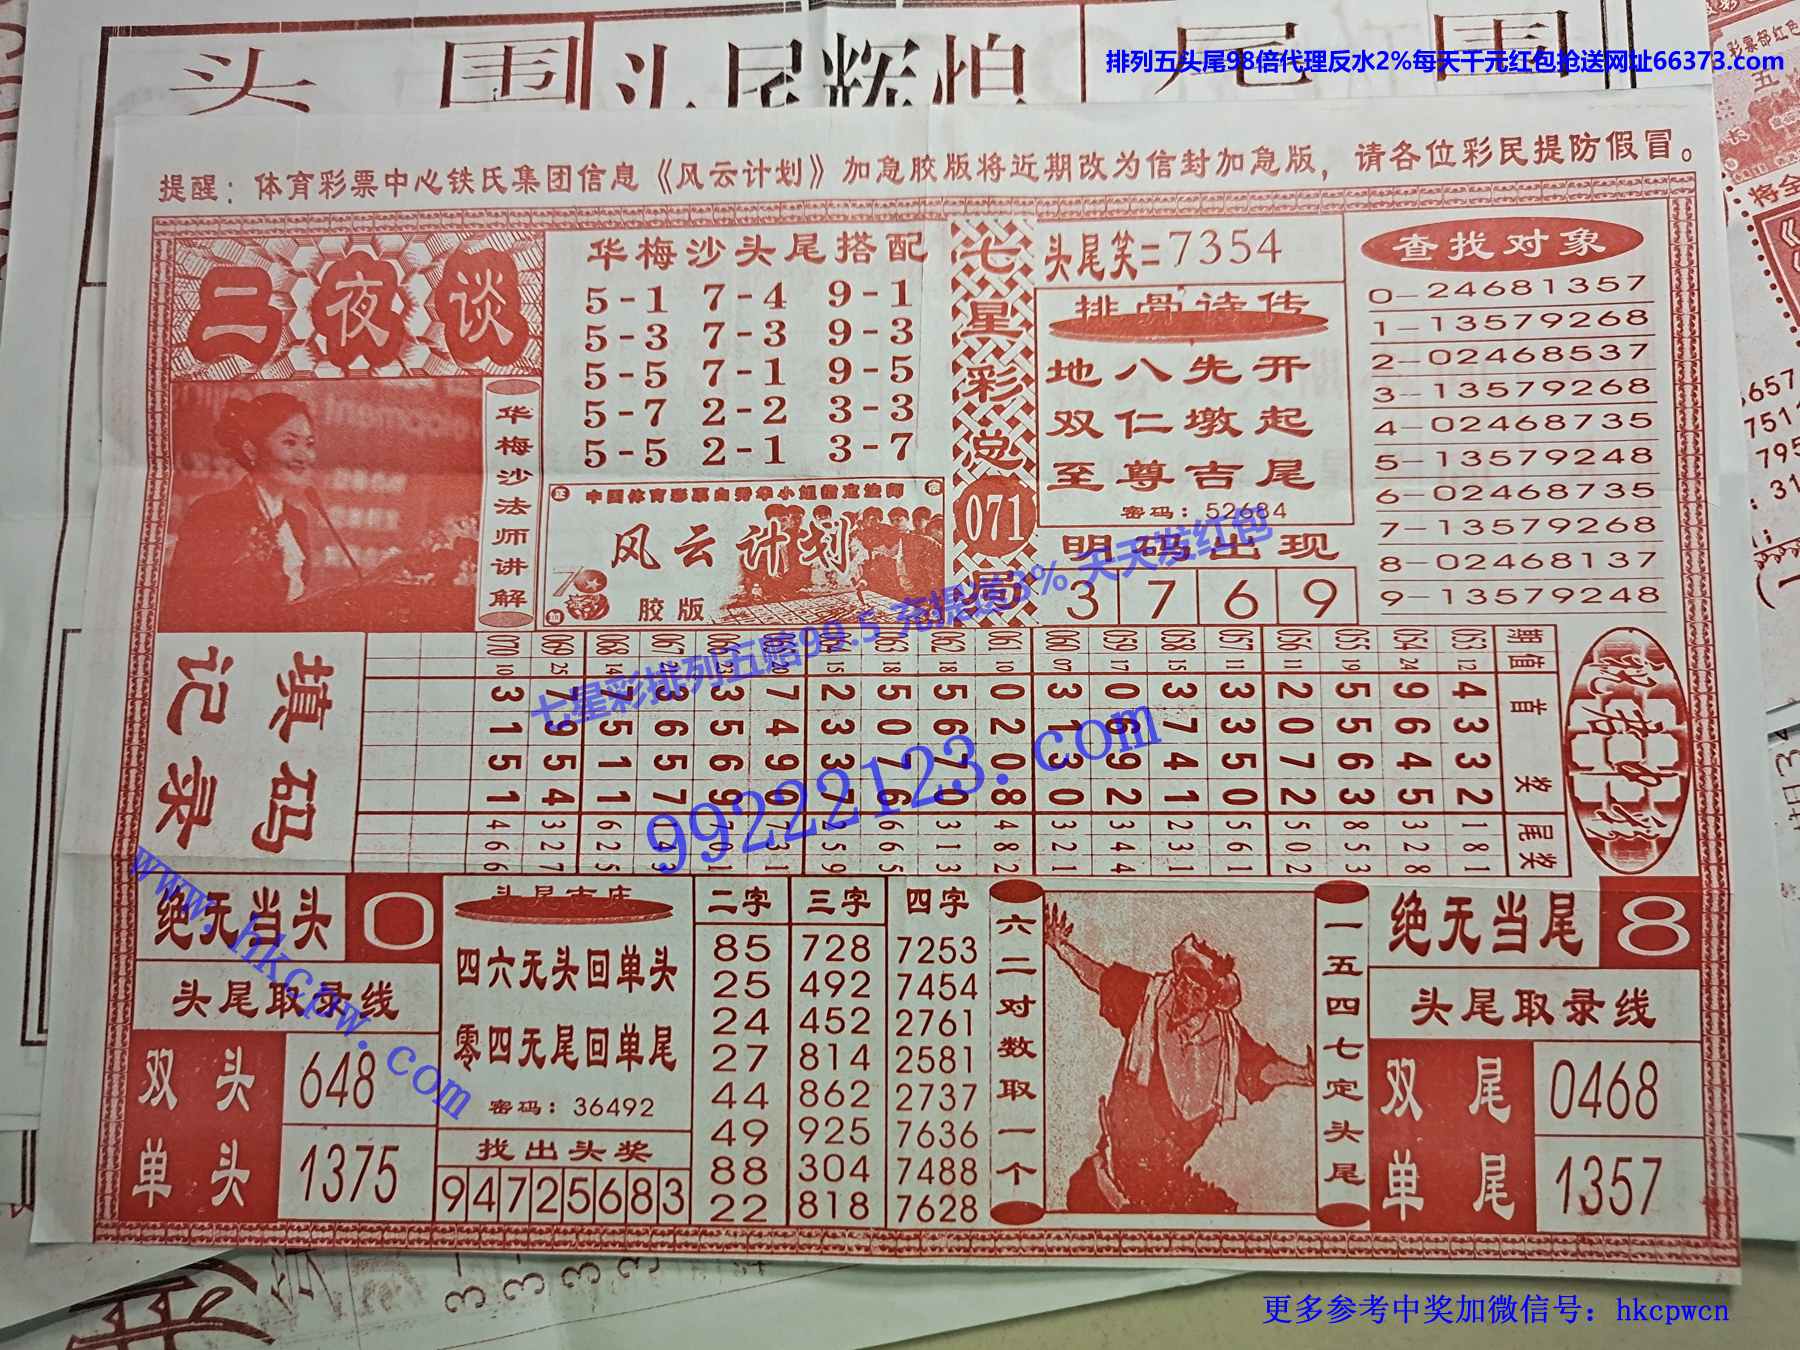 头 围 斗 尾 辉 怕 尾 围
排列五头尾98倍代理反水2%每天千元红包抢送网址66373.com
提醒：体育彩票中心铁氏集团信息《风云计划》加急胶版将近期改为信封加急版，请各位彩民提防假冒。
二夜谈
华梅沙法师讲解
华梅沙头尾搭配
5-1 7-4 9-1
5-3 7-3 9-3
5-5 7-1 9-5
5-7 2-2 3-3
5-5 2-1 3-7
风云计划
胶版
七星彩总
071
头尾笑=7354
排骨诗传
地八先开
双仁墩起
至尊吉尾
密码：52684
明码出现
3 7 6 9
查找对象
0-24681357
1-13579268
2-02468537
3-13579268
4-02468735
5-13579248
6-02468735
7-13579268
8-02468137
9-13579248
七星彩排列五赔99.5 充提送3% 天天发红包
99222123.com
www.hkcpw.com
填码记录
期 070 069 068 067 063 062 061 060 059 058 057 056 055 054 053
值 10 25 14 15 18 18 10 07 17 15 11 11 19 24 12
首奖
3 7 7 3 3 7 2 5 5 0 3 0 3 3 2 5 9 4
1 9 5 6 5 4 3 0 6 2 1 6 7 3 0 5 6 3
5 5 1 5 6 9 3 7 7 0 3 9 4 5 7 6 4 3
1 4 1 7 9 0 7 6 0 8 0 2 1 0 2 3 5 2
尾奖
绝无当头 0
头尾取录线
双头 648
单头 1375
四六无头回单头
零四无尾回单尾
密码：36492
找出头奖
94725683
二字 三字 四字
85 728 7253
25 492 7454
24 452 2761
27 814 2581
44 862 2737
49 925 7636
88 304 7488
22 818 7628
六二对数取一个
一五四七定头尾
绝无当尾 8
头尾取录线
双尾 0468
单尾 1357
更多参考中奖加微信号：hkcpwcn